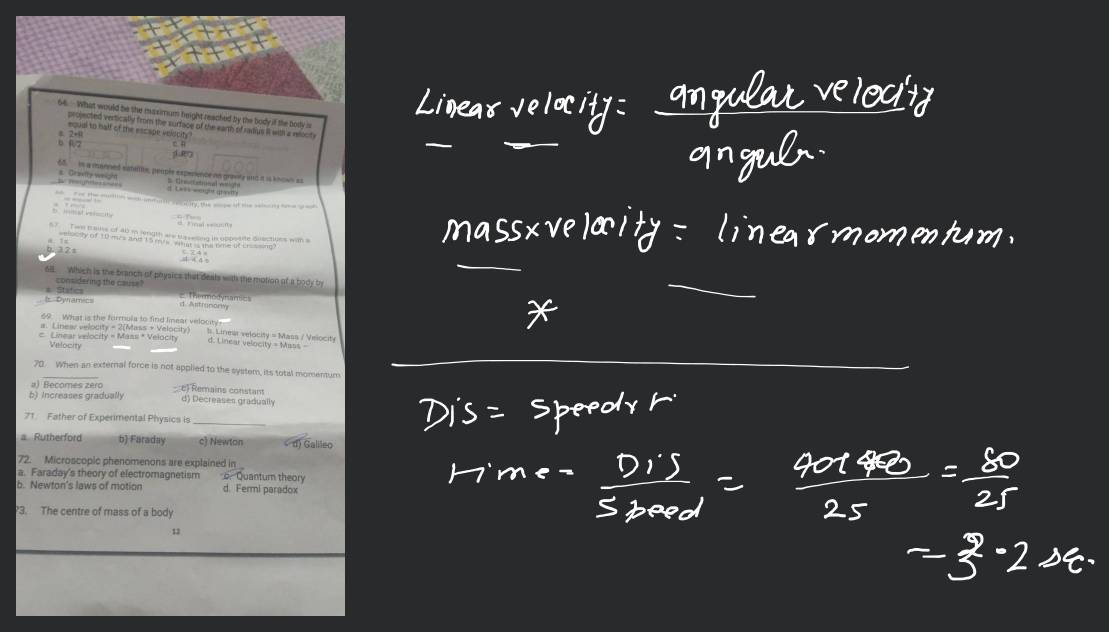 64. What would be the maximum height reached by the body if the body is
projected vertically from the surface of the earth of radius R with a velocity
equal to half of the escape velocity?
a. 2+R
c. R
b. R/2
d. R/3
65. In a manned satellite, people experience no gravity and it is known as
a. Gravity weight
b. Gravitational weight
b. Weightlessness
d. Less weight gravity
66. For the motion with uniform velocity, the slope of the velocity-time graph
is equal to
a. 1 m/s
c. Zero
b. Initial velocity
d. Final velocity
67. Two trains of 40 m length are travelling in opposite directions with a
velocity of 10 m/s and 15 m/s. What is the time of crossing?
a. 1s
c. 2.4 s
b. 3.2 s
d. 4.4 s
68. Which is the branch of physics that deals with the motion of a body by
considering the cause?
a. Statics
c. Thermodynamics
b. Dynamics
d. Astronomy
69. What is the formula to find linear velocity?
a. Linear velocity = 2(Mass + Velocity)
b. Linear velocity = Mass / Velocity
c. Linear velocity = Mass * Velocity
d. Linear velocity = Mass –
Velocity
70. When an external force is not applied to the system, its total momentum
a) Becomes zero
c) Remains constant
b) Increases gradually
d) Decreases gradually
71. Father of Experimental Physics is ____________
a. Rutherford b) Faraday c) Newton d) Galileo
72. Microscopic phenomenons are explained in
a. Faraday's theory of electromagnetism
c. Quantum theory
b. Newton's laws of motion
d. Fermi paradox
73. The centre of mass of a body
12
Linear velocity = angular velocity
angular
mass x velocity = linear momentum.
*
Dis = speed x t
time = Dis / speed = 40+40 / 25 = 80 / 25
= 3.2 sec.